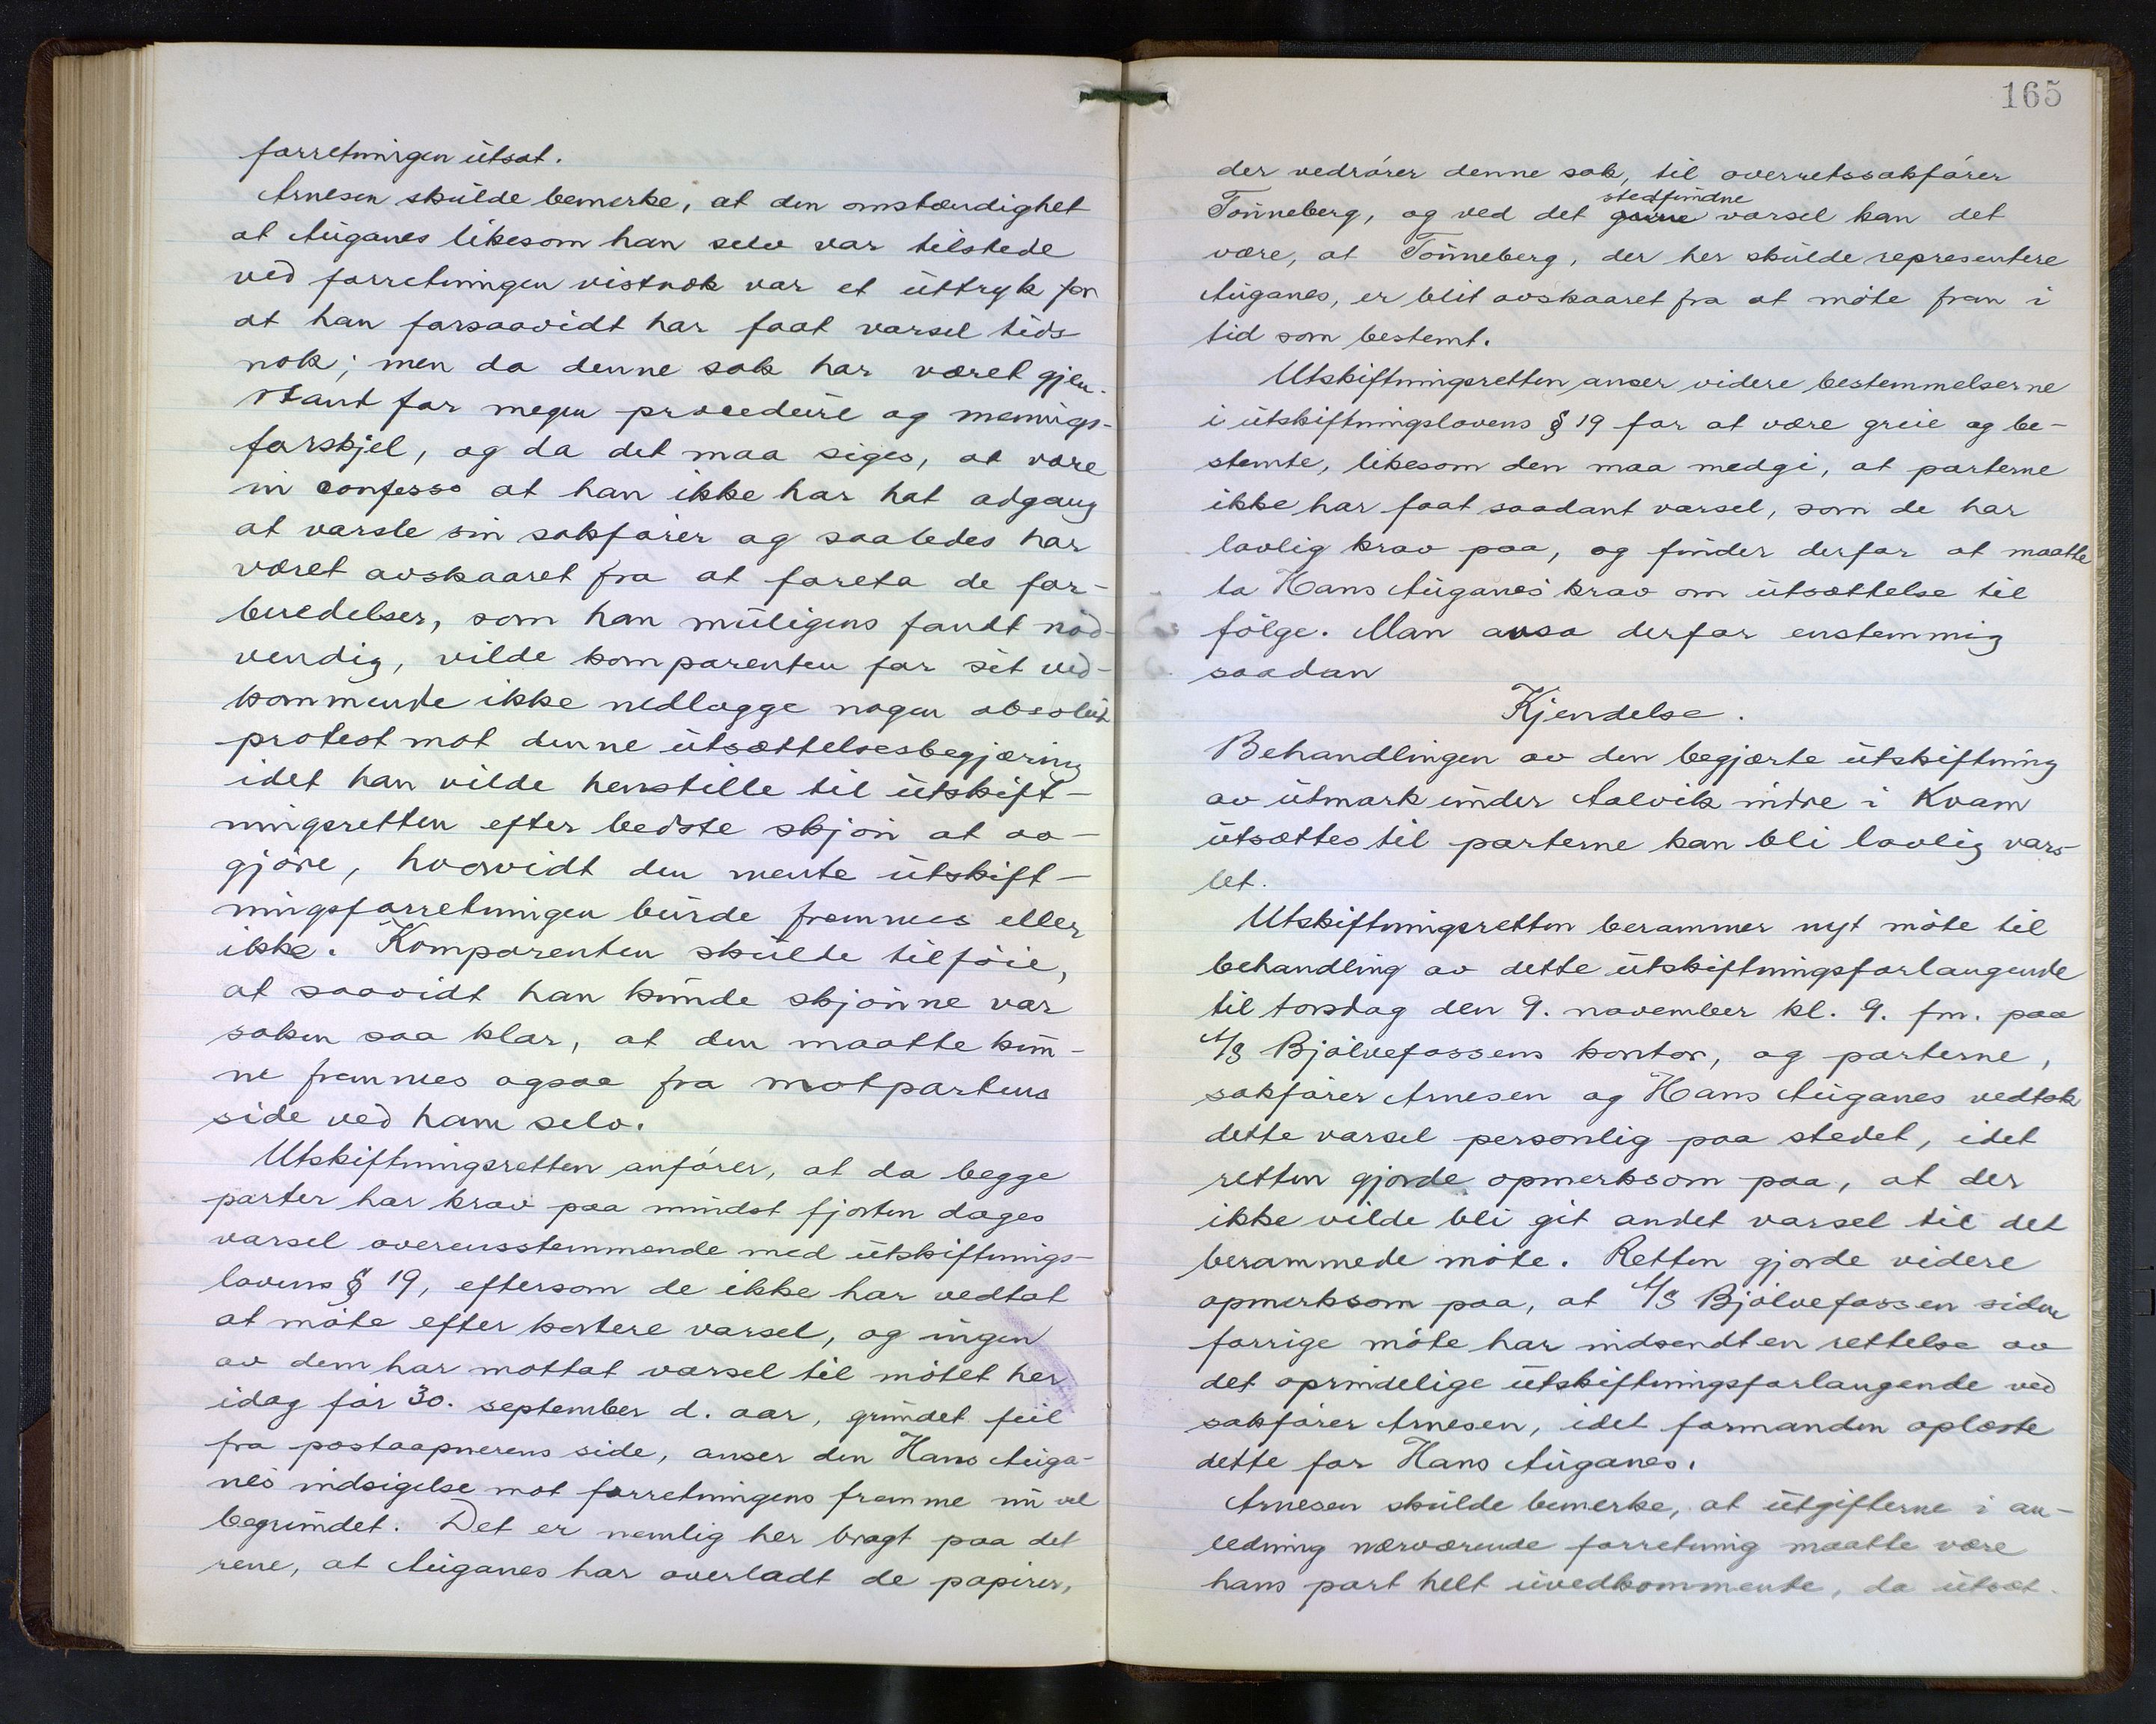 forretningen utsat.
Arnesen skulde bemerke, at den omstændighet
at Auganes likesom han selv var tilstede
ved forretningen vistnok var et uttryk for
at han forsaavidt har faat varsel tids
nok; men da denne sak har været gjen-
stand for megen procedure og menings-
forskjel, og da det maa siges, at være
in confesso at han ikke har hat adgang
at varsle sin sakfører og saaledes har
været avskaaret fra at foreta de for-
beredelser, som han muligens fandt nød-
vendig, vilde komparenten for sit ved-
kommende ikke nedlægge nogen absolut
protest mot denne utsættelsesbegjæring
idet han vilde henstille til utskift-
ningsretten efter bedste skjøn at av-
gjøre, hvorvidt den mente utskift-
ningsforretningen burde fremmes eller
ikke. Komparenten skulde tilføie,
at saavidt han kunde skjønne var
saken saa klar, at den maatte kun-
ne fremmes ogsaa fra motpartens
side ved ham selv.
Utskiftningsretten anfører, at da begge
parter har krav paa mindst fjorten dages
varsel overensstemmende med utskiftnings-
lovens § 19, eftersom de ikke har vedtat
at møte efter kortere varsel, og ingen
av dem har mottat varsel til møtet her
idag før 30. september d. aar, grundet feil
fra postaapnerens side, anser den Hans Auga-
nes indsigelse mot forretningens fremme nu vel
begrundet. Det er nemlig her bragt paa det
rene, at Auganes har overladt de papirer,
165
der vedrører denne sak, til overretssakfører
stedfundne
Tønneberg, og ved det varsel kan det
være, at Tønneberg, der her skulde representere
Auganes, er blit avskaaret fra at møte frem i
tid som bestemt.
Utskiftningsretten anser videre bestemmelserne
i utskiftningslovens § 19 for at være greie og be-
stemte, likesom den maa medgi, at parterne
ikke har faat saadant varsel, som de har
lovlig krav paa, og finder derfor at maatte
ta Hans Auganes' krav om utsættelse til
følge. Man avsa derfor enstemmig
saadan
Kjendelse.
Behandlingen av den begjærte utskiftning
av utmark under Aalvik indre i Kvam
utsættes til parterne kan bli lovlig vars-
let.
Utskiftningsretten berammer nyt møte til
behandling av dette utskiftningsforlangende
til torsdag den 9. november kl. 9. fm. paa
A/S Bjølvefossens kontor, og parterne,
sakfører Arnesen og Hans Auganes vedtok
dette varsel personlig paa stedet, idet
retten gjorde opmerksom paa, at der
ikke vilde bli git andet varsel til det
berammede møte. Retten gjorde videre
opmerksom paa, at A/S Bjølvefossen siden
forrige møte har indsendt en rettelse av
det oprindelige utskiftningsforlangende ved
sakfører Arnesen, idet formanden oplæste
dette for Hans Auganes.
Arnesen skulde bemerke, at utgifterne i an-
ledning nærværende forretning maatte være
hans part helt uvedkommende, da utsæt-